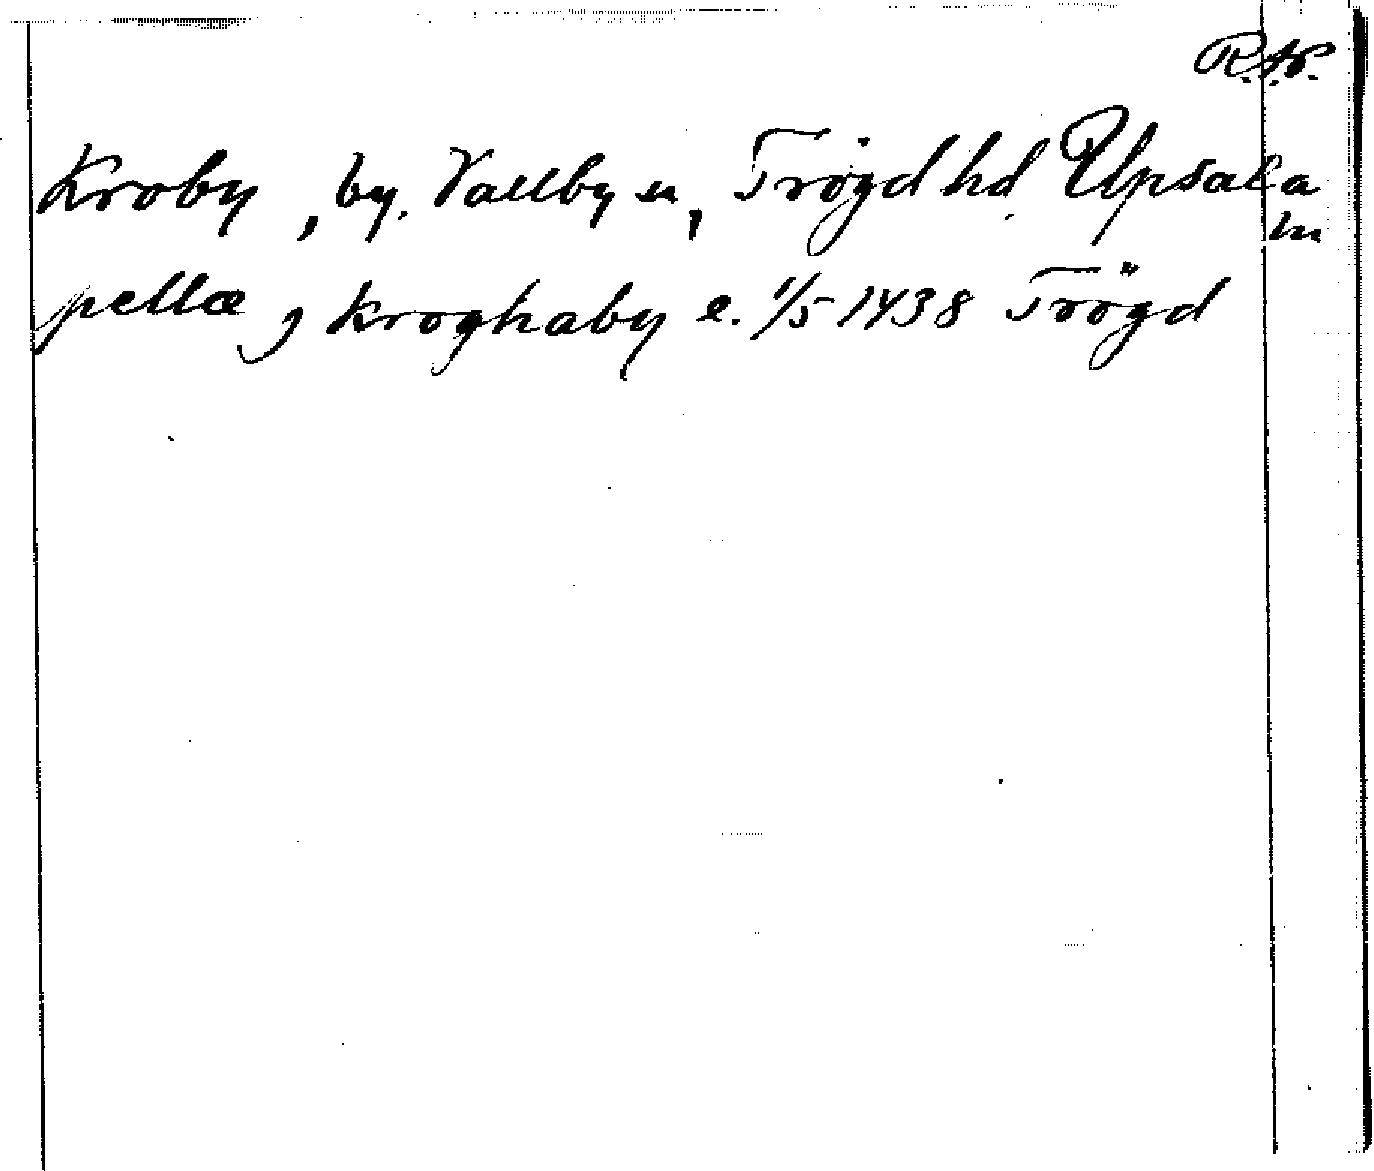 R.A.P.
Kroby, by. Vallby sn, Trögd hd. Upsala
ln
pellæ j kroghaby e. 1/5 1438 Trögd